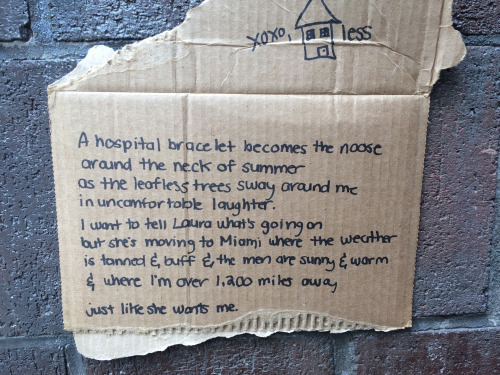 xoxo, less
A hospital bracelet becomes the noose
around the neck of summer
as the leafless trees sway around me
in uncomfortable laughter.
I want to tell Laura what's going on
but she's moving to Miami where the weather
is tanned & buff & the men are sunny & warm
& where I'm over 1,200 miles away
just like she wants me.